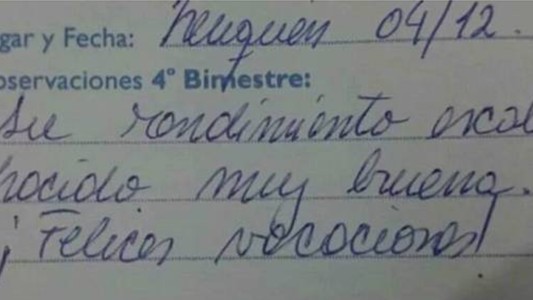 gar y Fecha: Neuquen 04/12.
bservaciones 4° Bimestre:
Su rendimiento escol
ha sido muy buena.
¡Felices vacaciones!